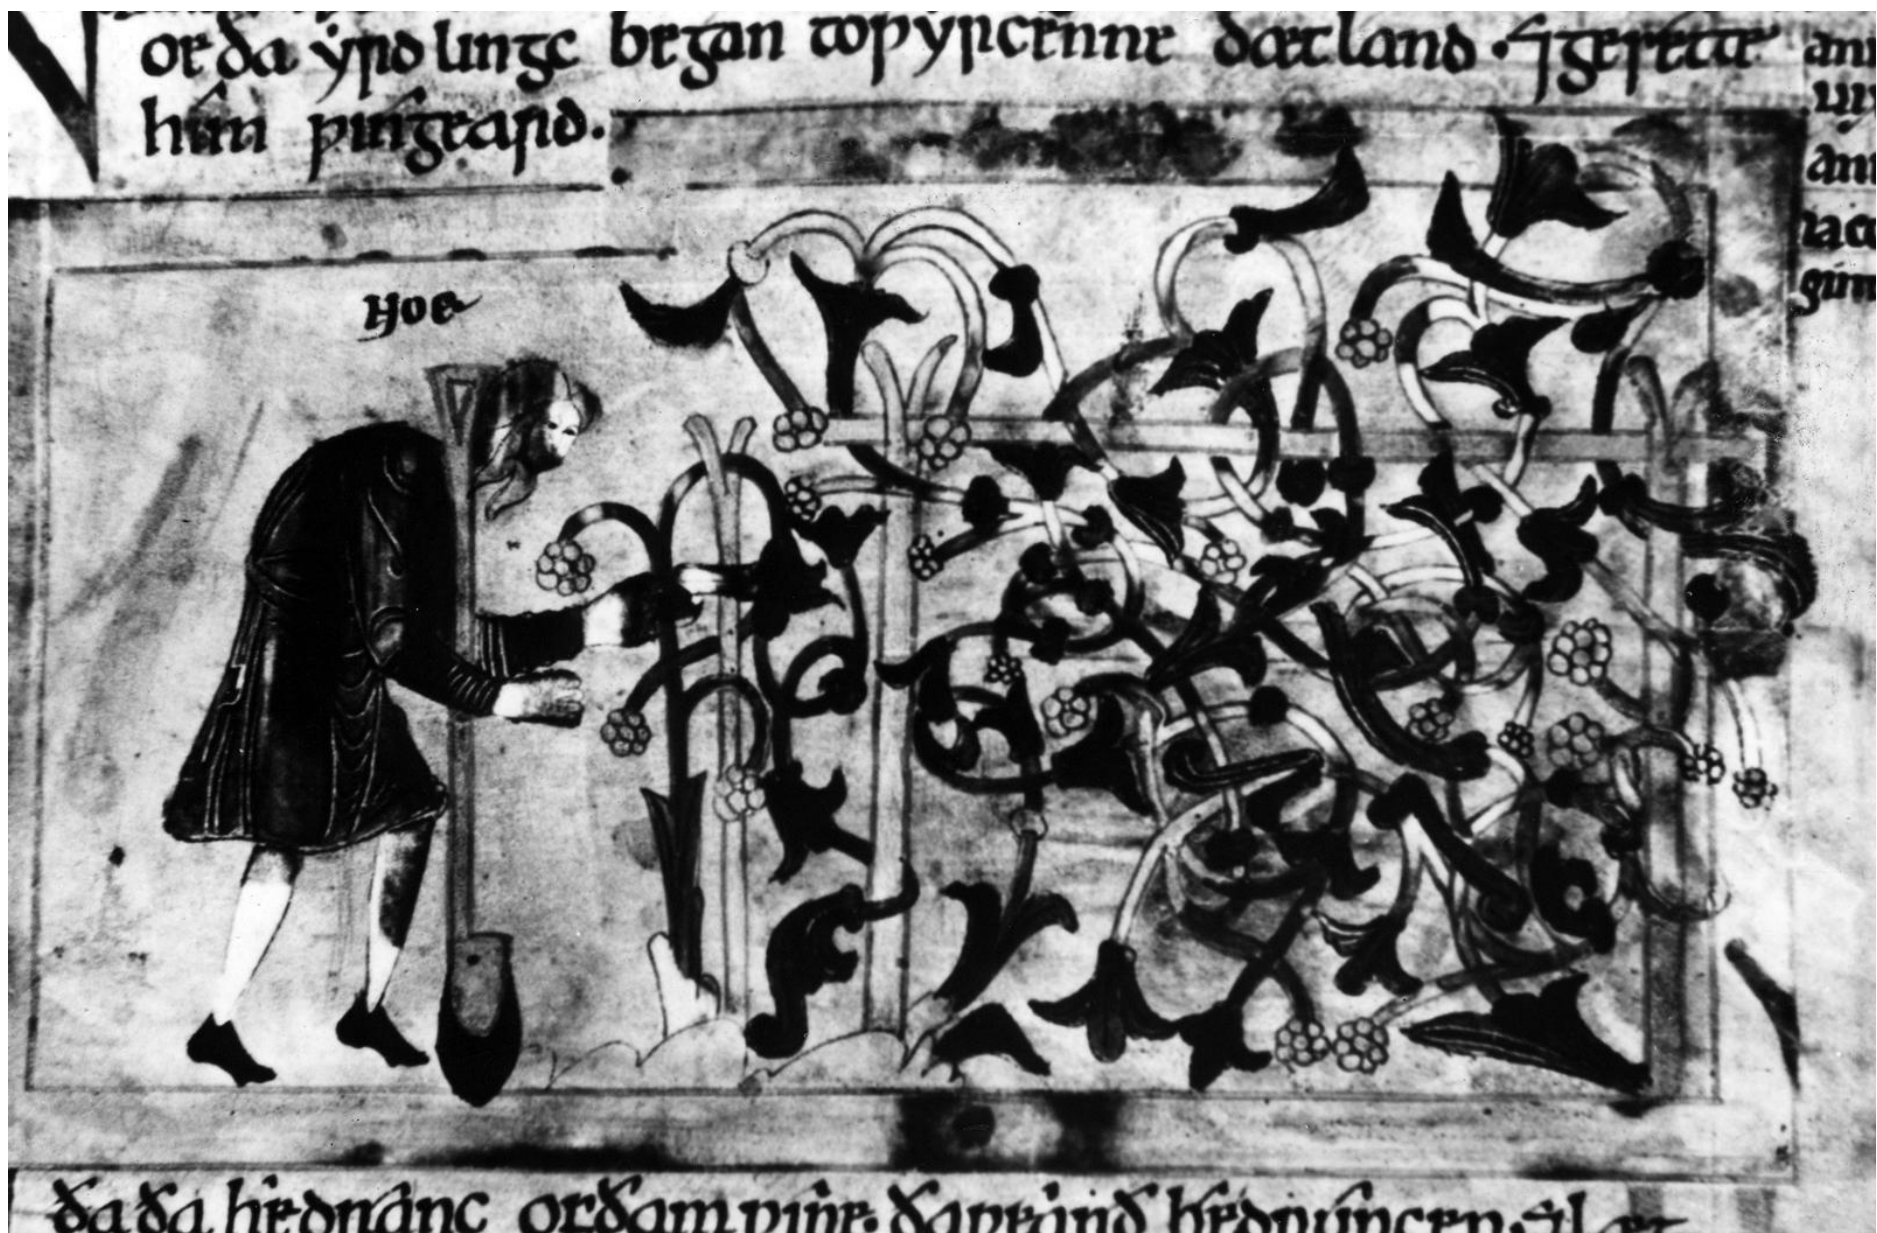 Noe ða ẏrðlingc began toƿyrcenne ðæt land · ⁊gesette
him ƿingeard.
Noe
ða ða he dranc of ðam ƿine. ða ƿearð he druncen.